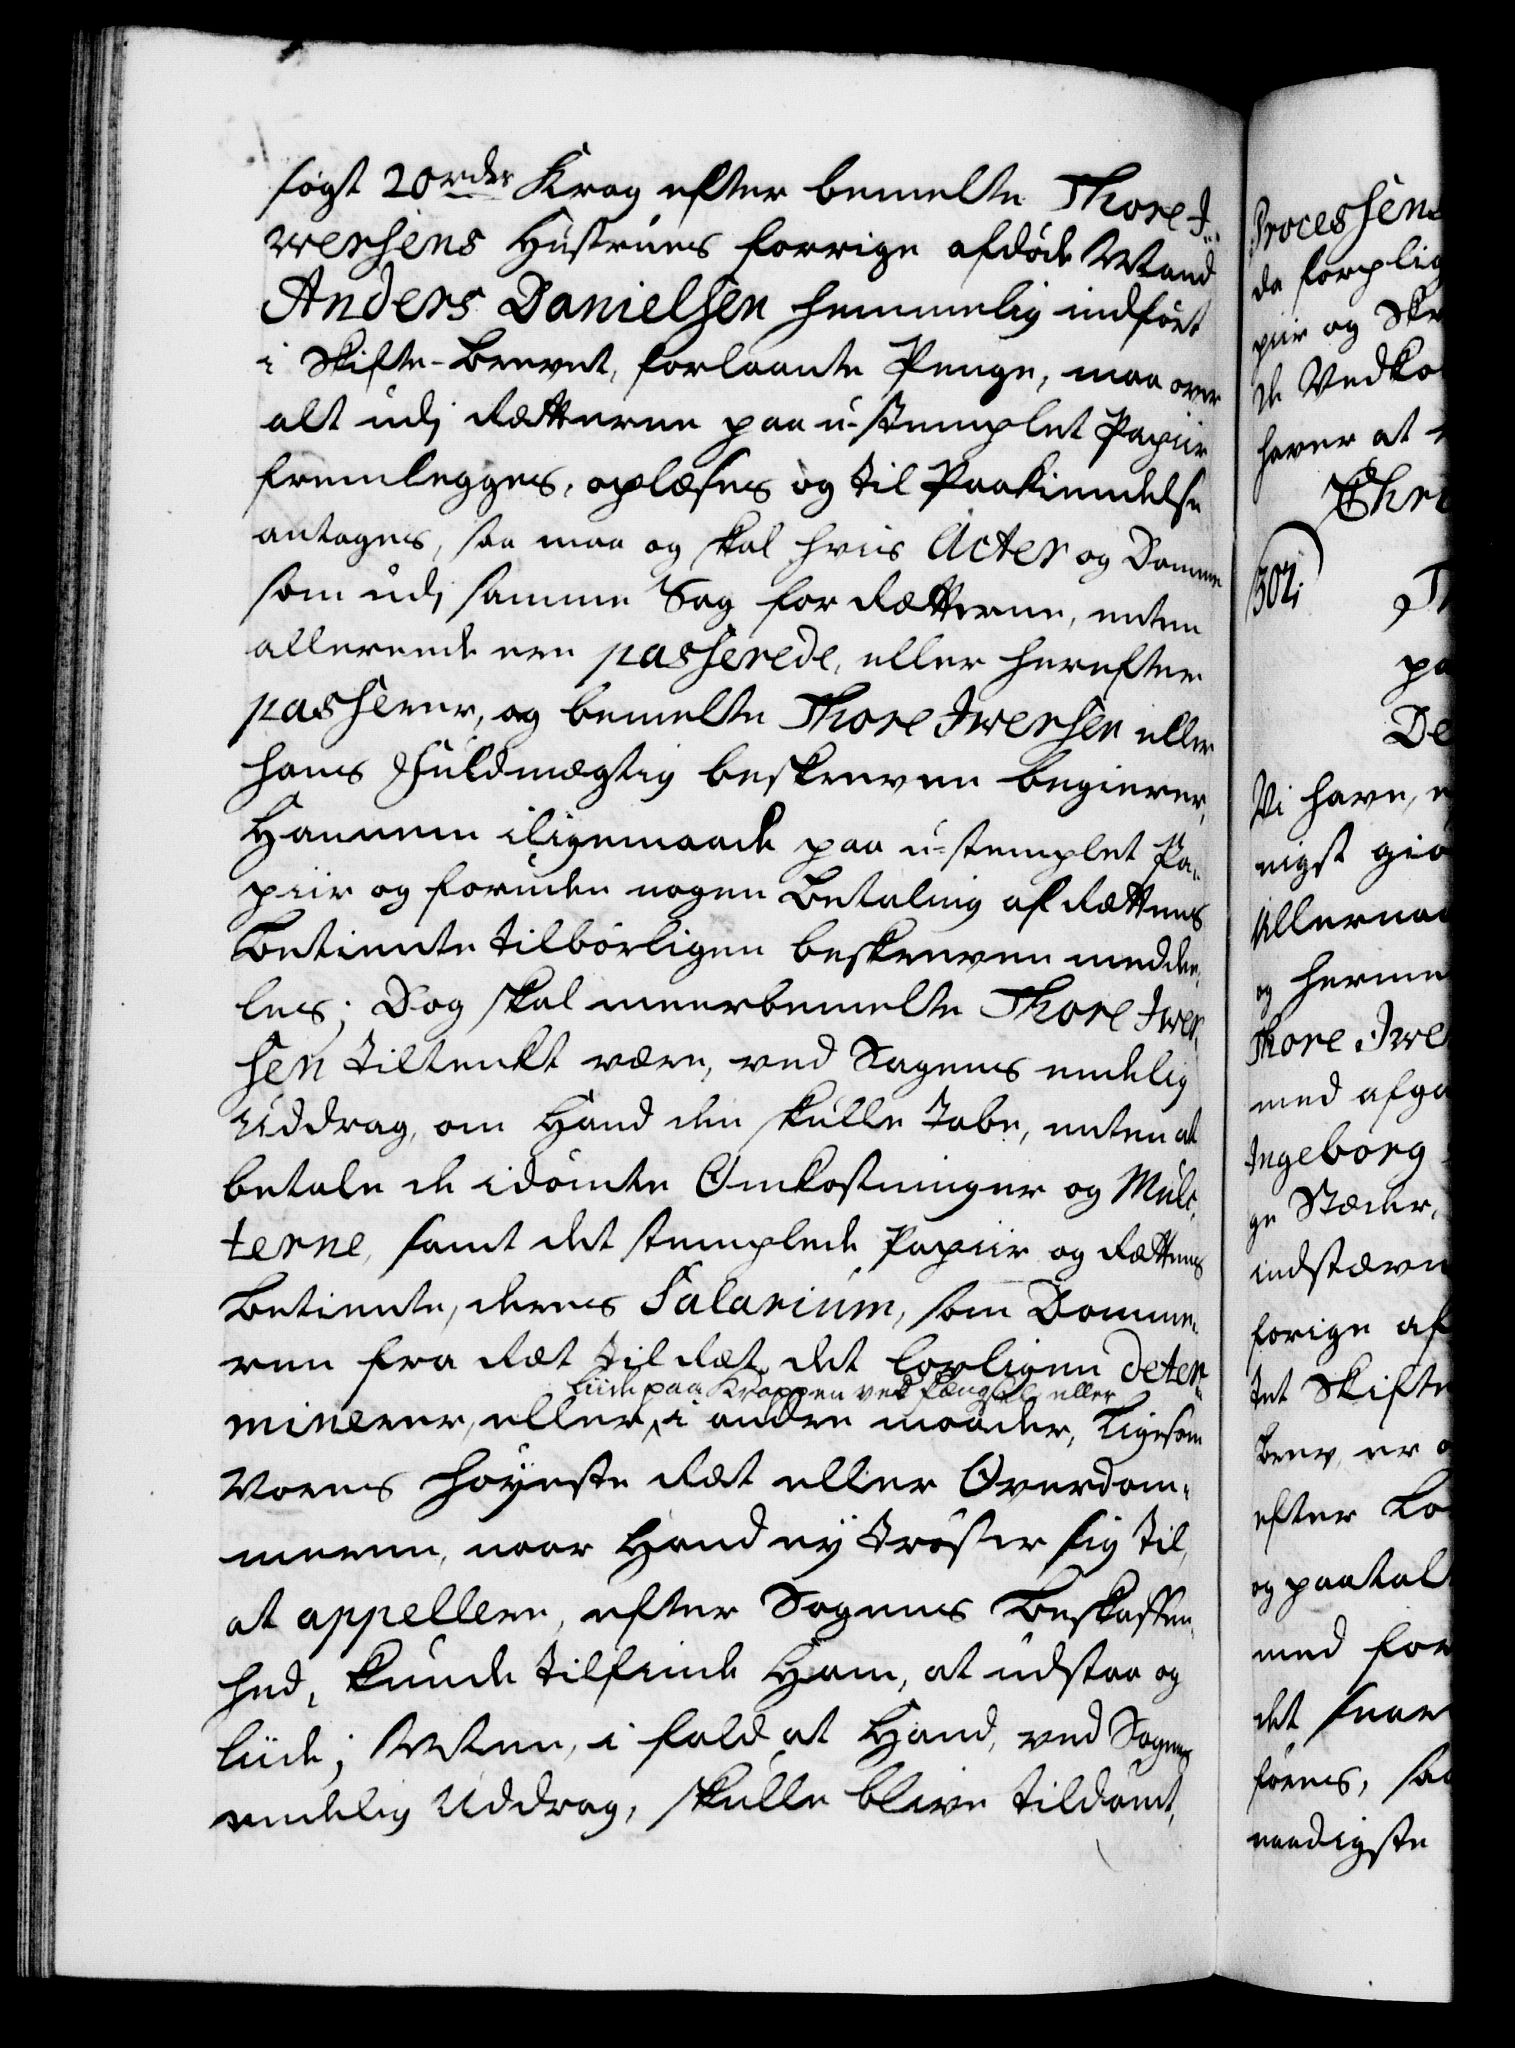 søgt 20 rdr Krog efter bemelte Thore I-
wersens Hustrues forrige afdøde Mand
Anders Danielsen hemmelig indført
i Skifte-Brevet, forlaante Penge, maa over
alt udj Rætterne paa u-stemplet Papiir
fremlegges, oplæses og til Paakiendelse
antages, saa maa og skal hvis Acter og Domme
som udj samme Sag for Rætterne, enten
allereede ere passerede, eller herefter
passerer, og bemelte Thore Iwersen eller
hans Fuldmægtig beskreven begierer,
Hannem iligemaade paa u-stemplet Pa-
piir og foruden nogen Betaling af Rættens
Betiente tilbørligen beskreven meddee-
les; Dog skal meerbemelte Thore Iwer-
sen tiltenkt være, ved Sagens endelig
Uddrag, om Hand den skulle tabe, enten at
betale de idømte Omkostninger og Mulc-
terne, samt det stemplede Papiir og Rættens
Betiente, deres Salarium, som Domme-
ren fra Ræt til Ræt det lovligen deter-
liide paa Kroppen ved Fængsel, eller
minerer, eller i andre maader, ligesom
Vores Høyeste Ræt eller Overdom-
meren, naar Hand ey trøster sig til,
at appellere, efter Sagens Beskaffen-
hed, kunde tilfinde Ham, at udstaa og
liide; Men, i fald at Hand, ved Sagens
endelig Uddrag, skulle blive tildømt,
Processens
da forplig
piir og Skr
de Vedko
haver at
Chri
302.
Th
pa
De
Vi have, e
nigst giø
Allernaa
og herme
Thore Iwe
med afga
Ingeborg
ge Stæder,
indstævn
forige af
tet Skifte
Brev, er o
efter Lo
og paatal
med for
det snar
føres, saa
naadigste